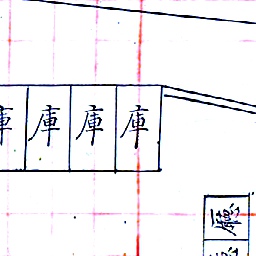 庫庫庫庫
廳